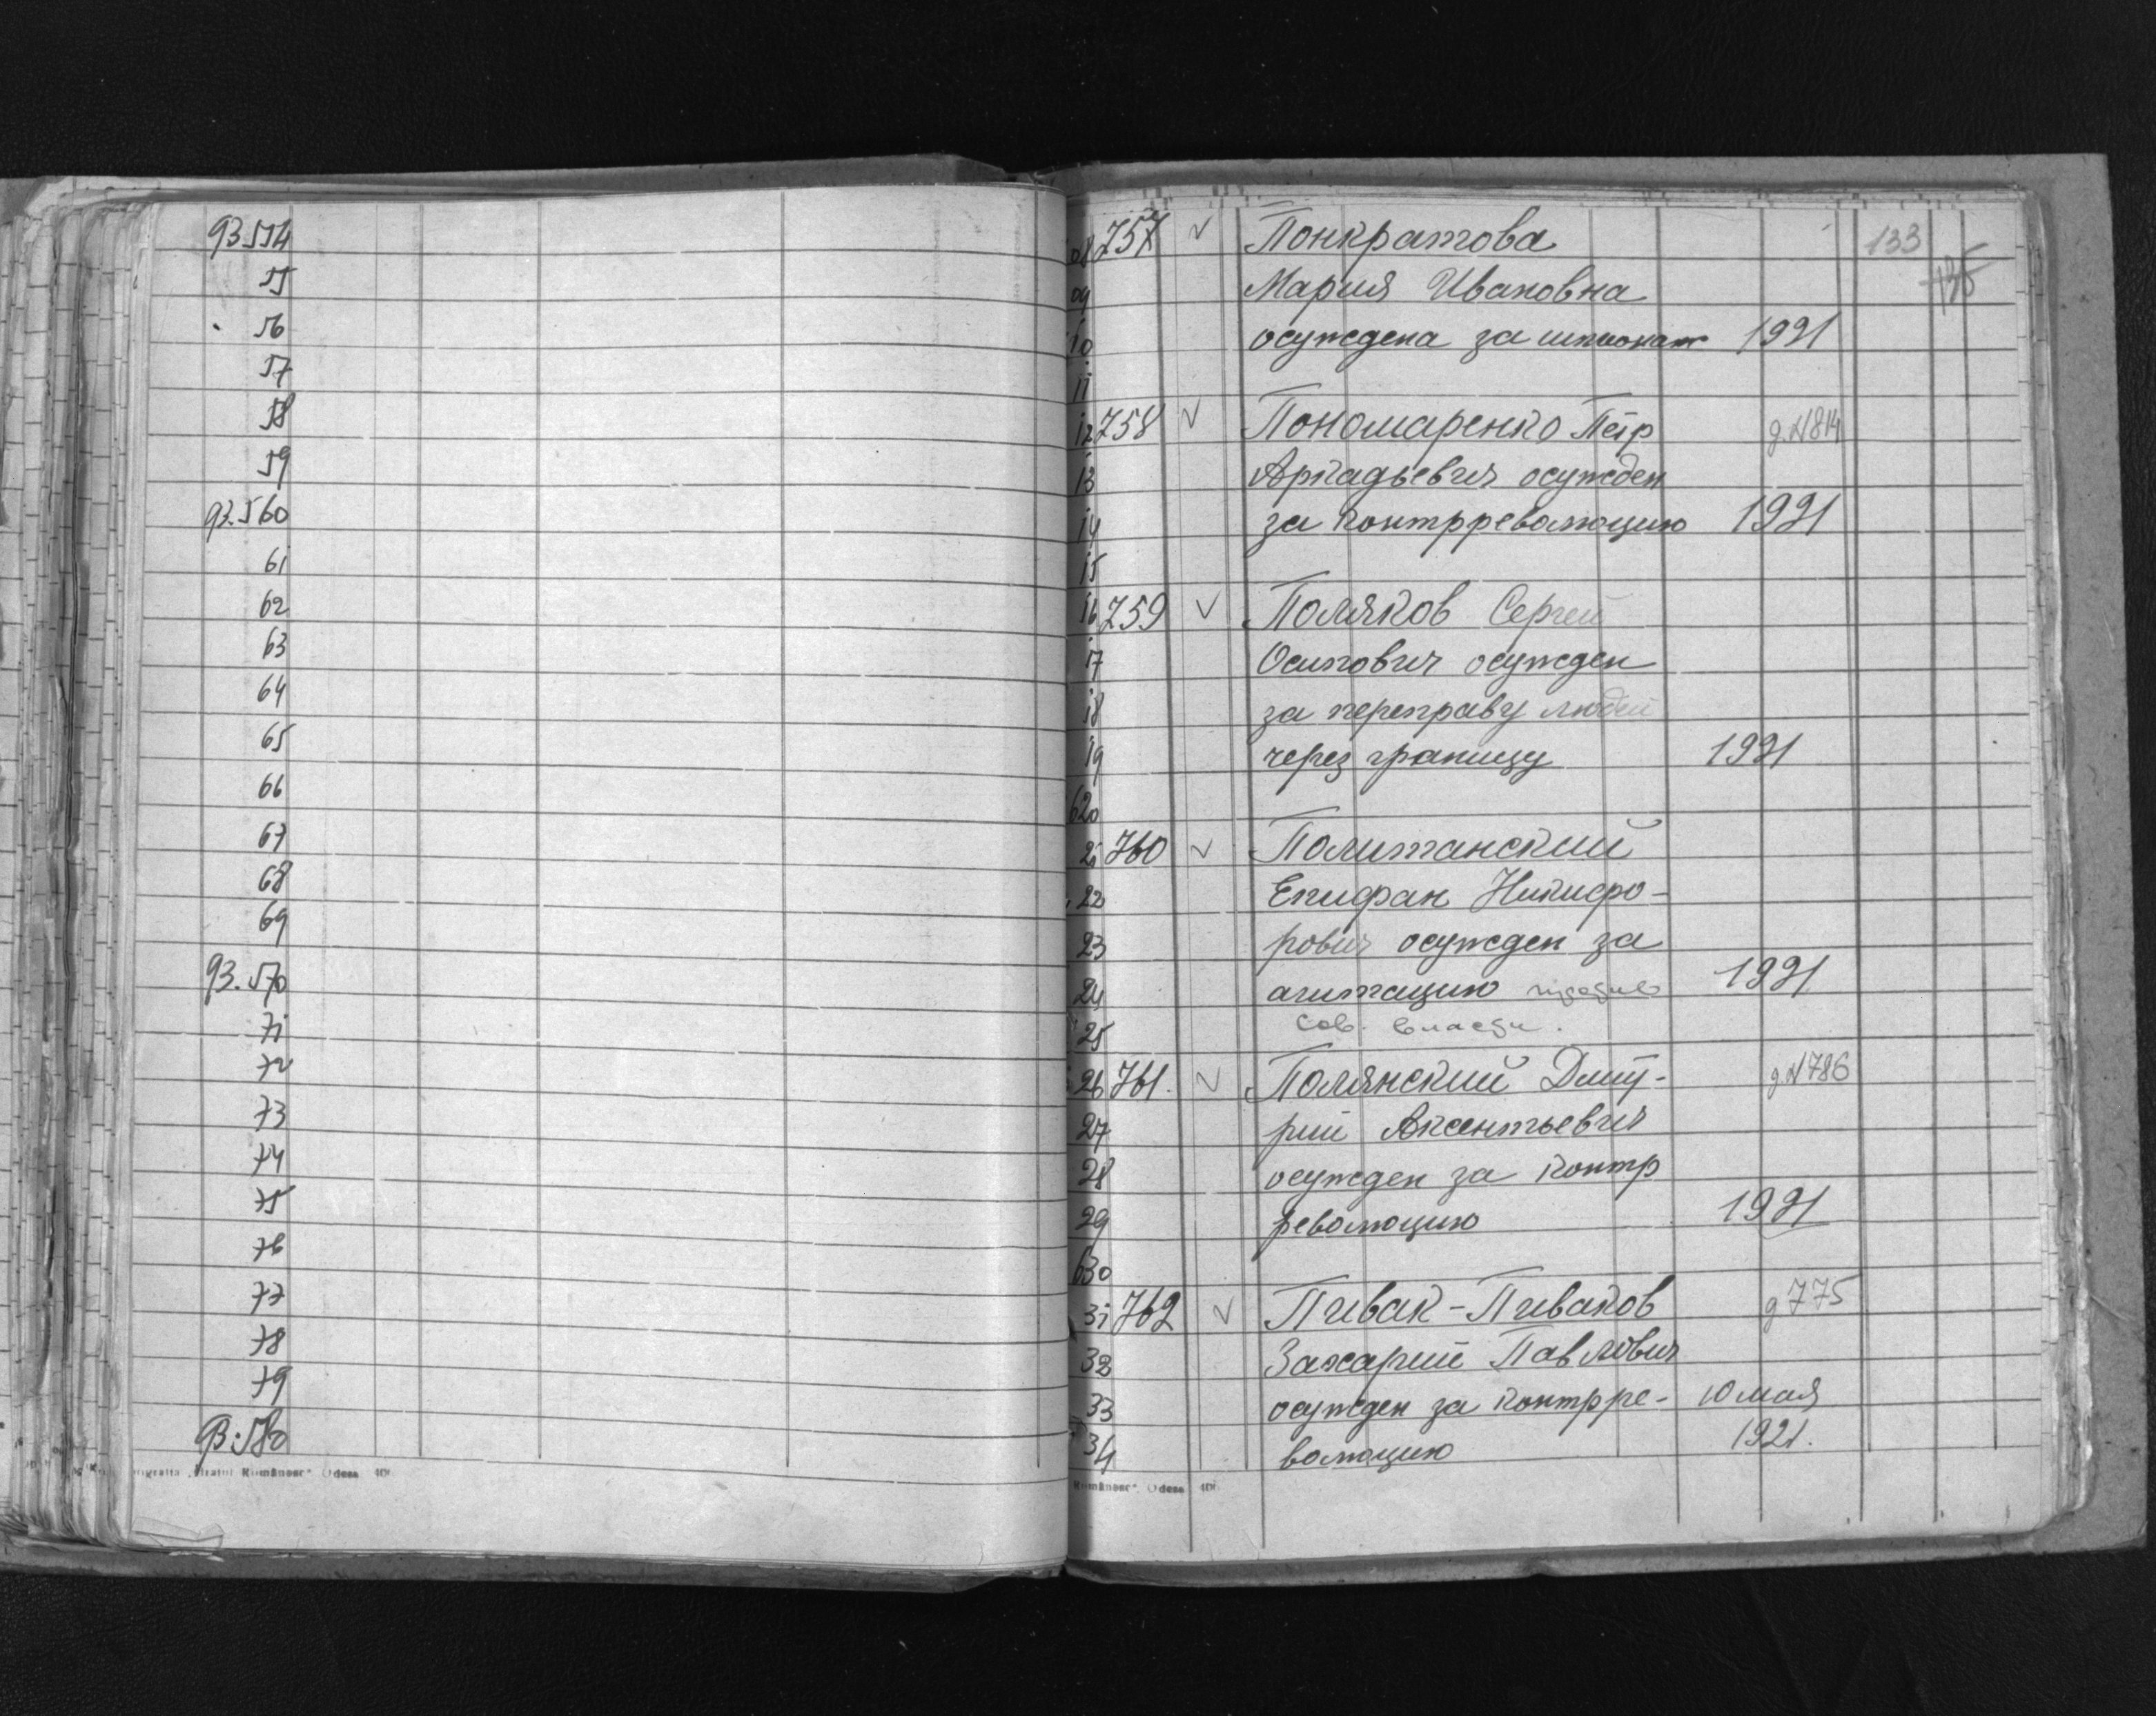 93554
55
56
57
58
59
93.560
61
62
63
64
65
66
67
68
69
93.570
71
72
73
74
75
76
77
78
79
93.580
Odesa
133
135
08 757 ✓ Понкратова
09 Мария Ивановна
10 осуждена за шпионаж 1921
11
12 758 ✓ Пономаренко Петр д.N814
13 Аркадьевич осужден
14 за контрреволюцию 1921
15
16 759 ✓ Поляков Сергей
17 Осипович осужден
18 за переправу людей
19 через границу 1921
620
21 760 ✓ Политанский
22 Епифан Никифо-
23 рович осужден за
24 агитацию против 1921
25 сов. власти.
26 761. ✓ Полянский Дмит-
д.N786
27 рий Аксентьевич
28 осужден за контр
29 революцию 1921
630
31 762 ✓ Пивак-Пиваков д 775
32 Захарий Павлович
33 осужден за контрре- 10 мая
34 волюцию 1921.
Odesa